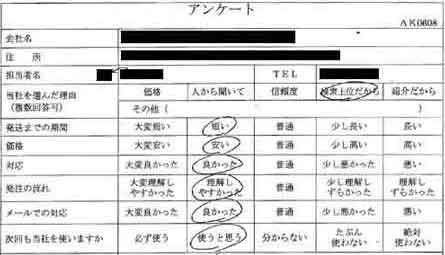 アンケート
AK0608
会社名
住 所
担当者名 TEL
当社を選んだ理由 価格 人から聞いて 信頼度 検索上位だから 紹介だから
(複数回答可) その他(
発送までの期間 大変短い 短い 普通 少し長い 長い
価格 大変安い 安い 普通 少し高い 高い
対応 大変良かった 良かった 普通 少し悪かった 悪い
発注の流れ 大変理解し 理解し 普通 少し理解し 理解し
やすかった やすかった ずらかった ずもかった
メールでの対応 大変良かった 良かった 普通 少し悪かった 悪い
次回も当社を使いますか 必ず使う 使うと思う 分からない たぶん 絶対
使わない 使わない